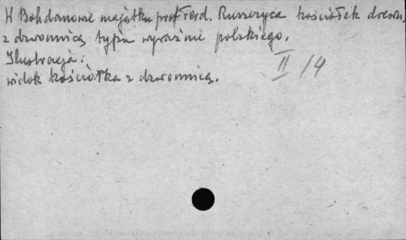 W Bohdanowie majątku prof. Ferd. Ruszczyca kościółek drewn.
z dzwonnicą typu wyraźnie polskiego.
Ilustracja:
widok kościółka z dzwonnicą.
II/4